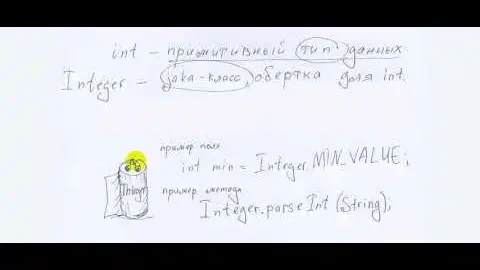 int - примитивный тип данных
Integer - java-класс, обертка для int.
пример поля
int min = Integer.MIN_VALUE;
Integer
пример метода
Integer.parseInt(String);